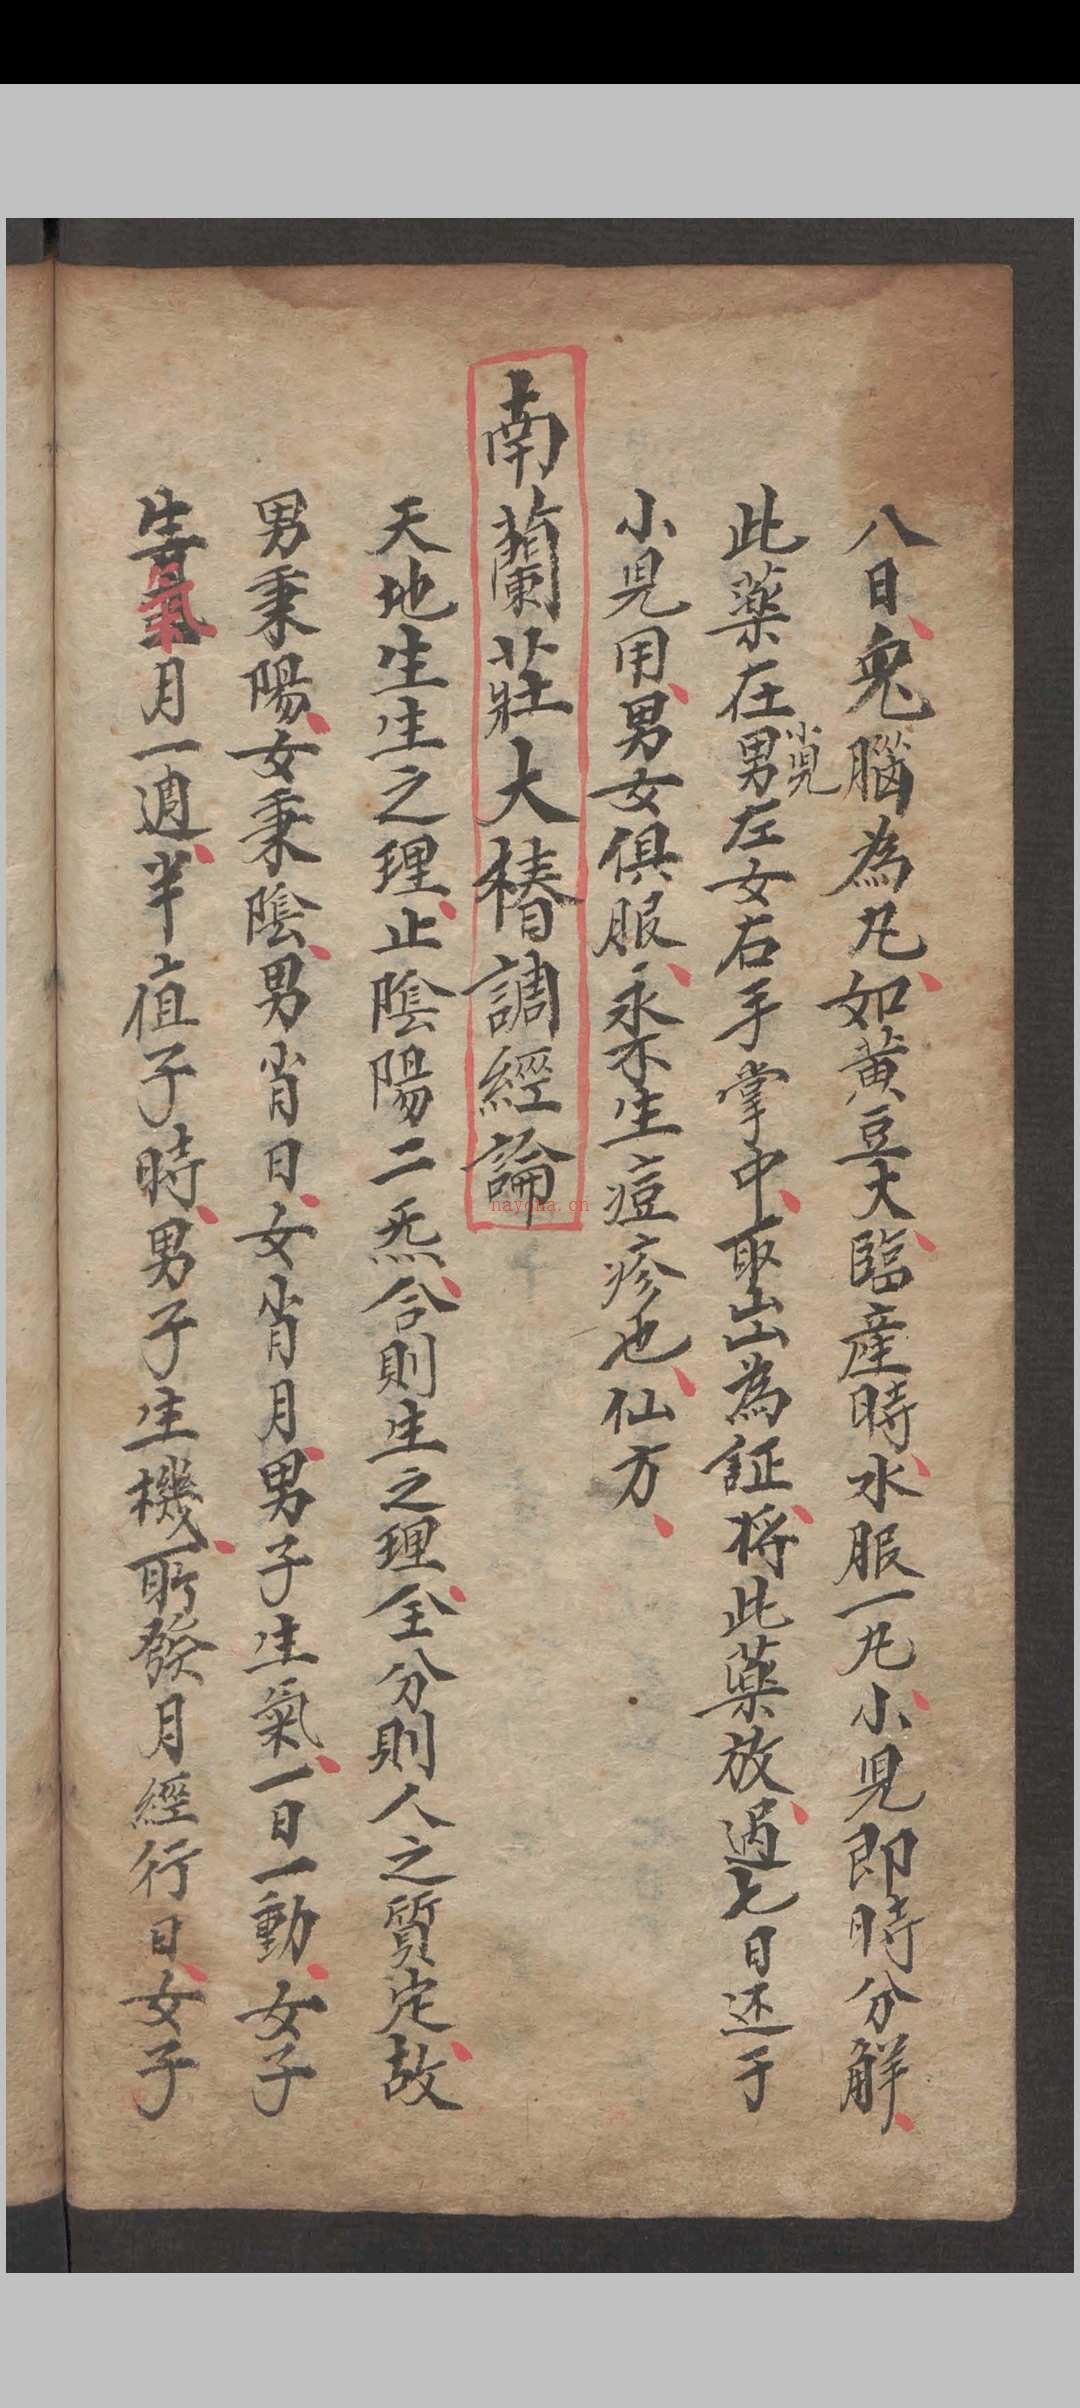 八日兔腦為丸如黃豆大臨產時水服一丸小児即時分解
此藥在小児男左女右手掌中取出為証將此藥放過七日还于
小児用男女俱服永不生痘疹也仙方
南蘭莊大椿調經論
天地生生之理止陰陽二炁合則生之理全分則人之質定故
男秉陽女秉陰男肖日女肖月男子生氣一日一動女子
生氣月一週半值子時男子生機所發月經行日女子
nayona.cn